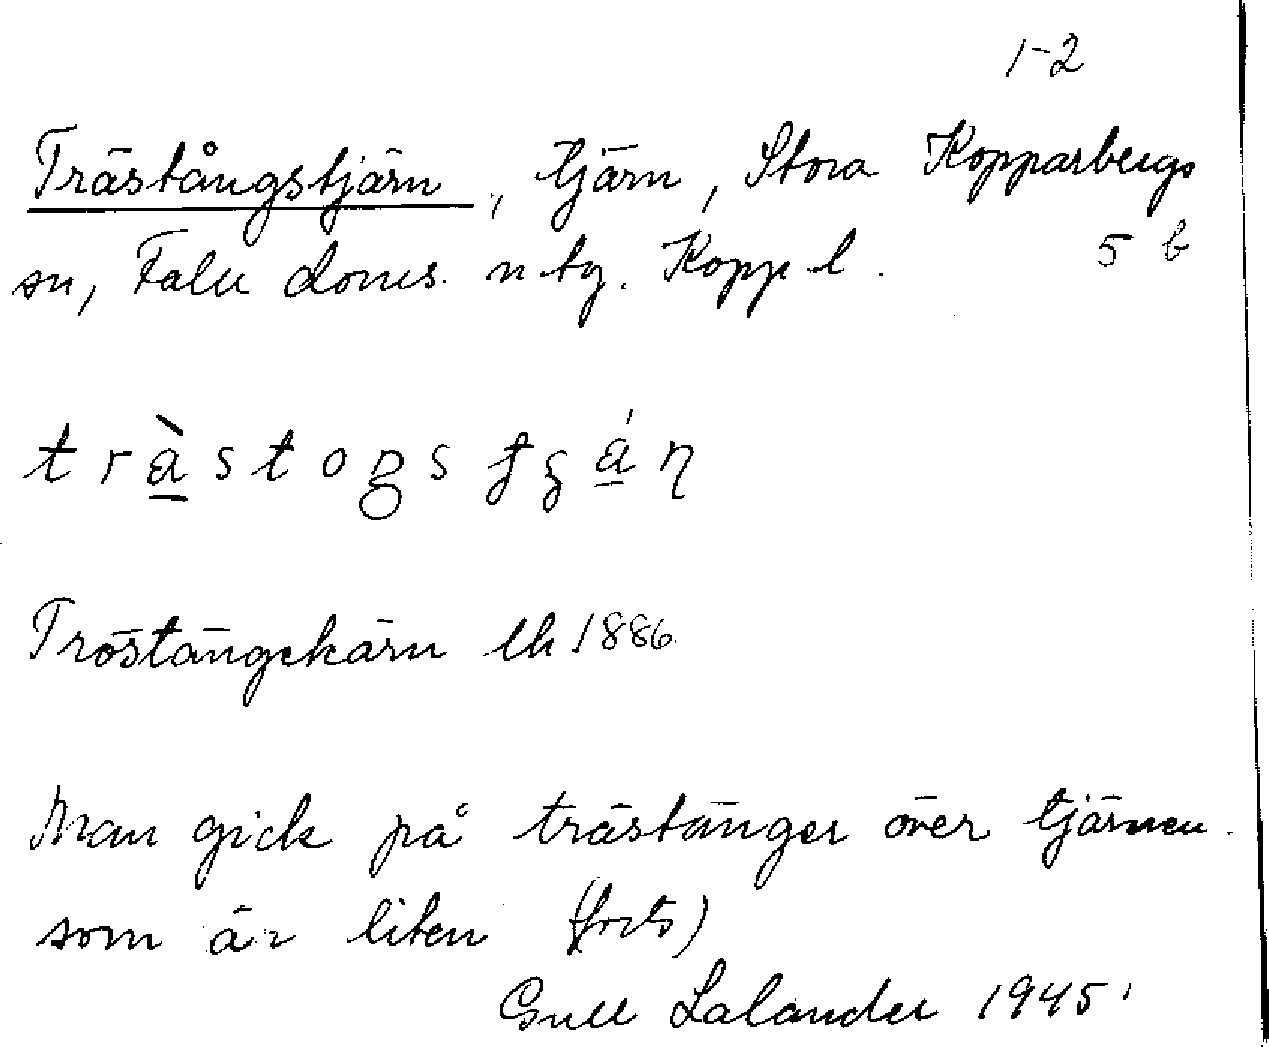 1-2
Trästångstjärn, tjärn, Stora Kopparbergs
sn, Falu doms. n tg. Kopp l. 5 b
Tröstängekärn lk 1886
Man gick på trästänger över tjärnen
som är liten (forts)
Gull Lalander 1945